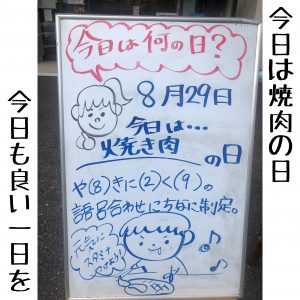 今日は焼肉の日
今日も良い一日を
今日は何の日?
8月29日
今日は…
焼き肉の日
や(8)きに(2)く(9)の
語呂合わせにちなに制定。
スタミナ